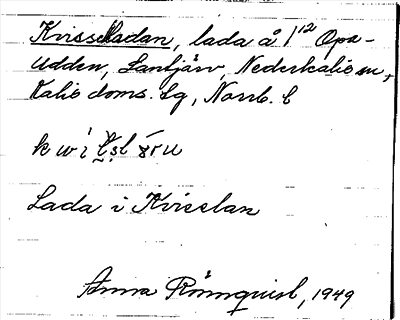 Kvisselladan, lada å 1¹² Opa-
udden, Santjärv, Nederkalix sn,
Kalix doms. Lg, Norrb. l
Lada i Kvisslan
Anna Rönnquist, 1949